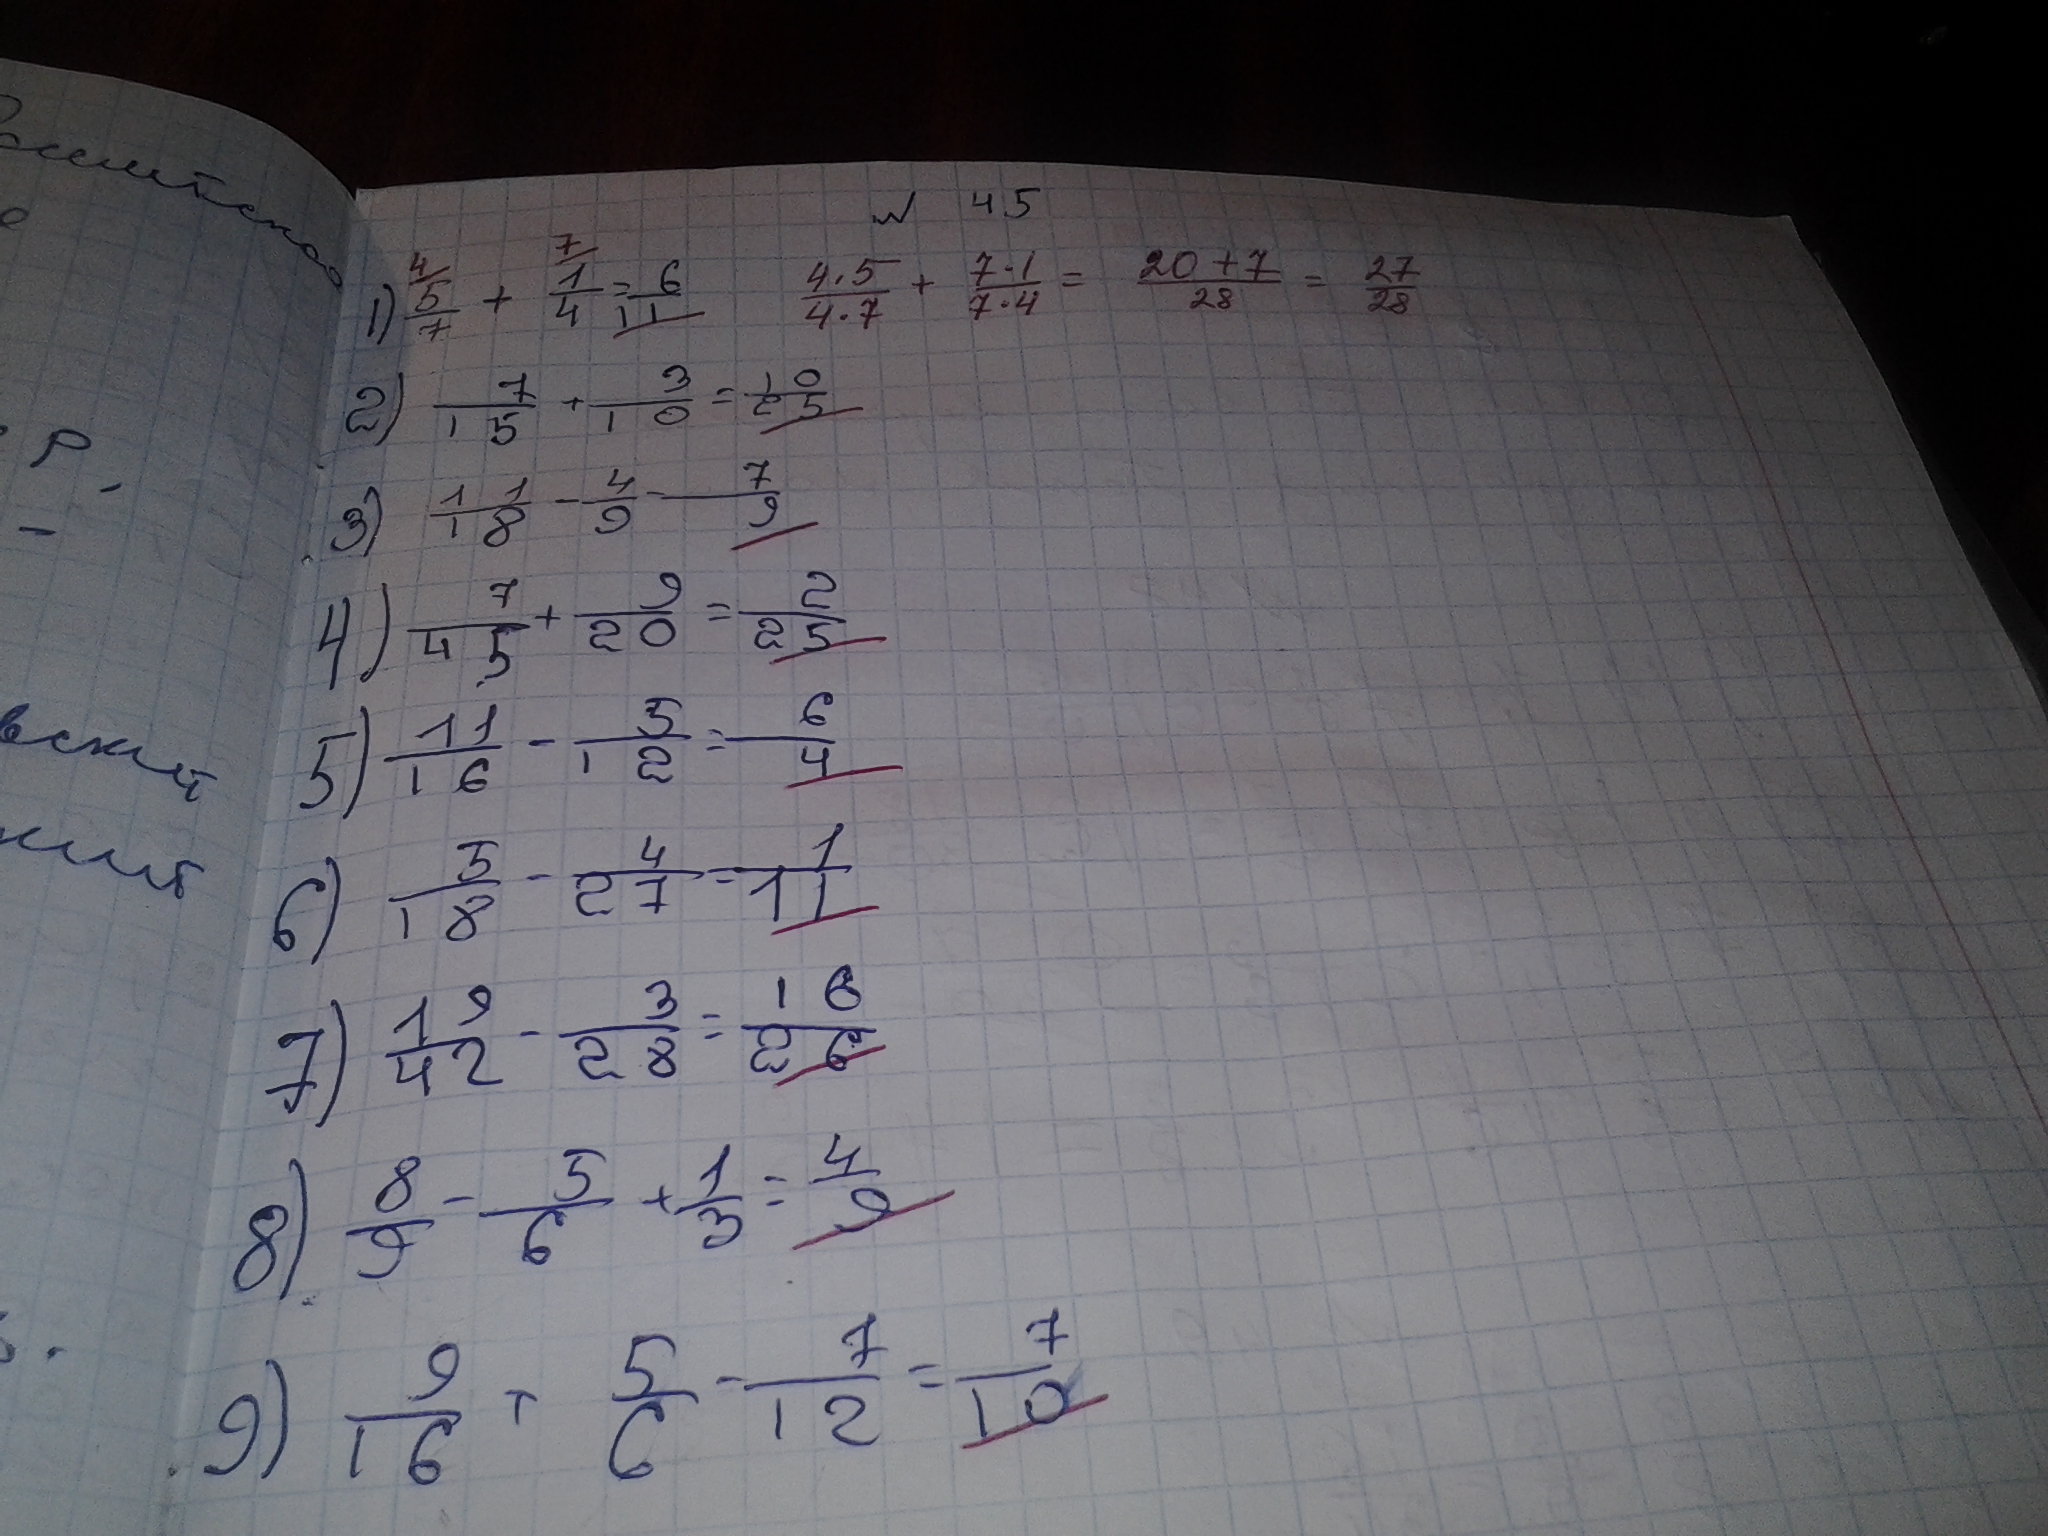 Российской
е
Р.
-
вский
ния
№ 45
1) 4/ 5/7 + 7/ 1/4 = 6/11 4·5/4·7 + 7·1/7·4 = 20+7/28 = 27/28
2) 7/15 + 3/10 = 10/25
3) 11/18 - 4/9 - 7/9
4) 7/45 + 9/20 = 2/25
5) 11/16 - 5/12 = 6/4
6) 5/18 - 4/27 = 1/11
7) 19/42 - 3/28 = 16/26
8) 8/9 - 5/6 + 1/3 = 4/9
9) 9/16 + 5/6 - 7/12 = 7/10